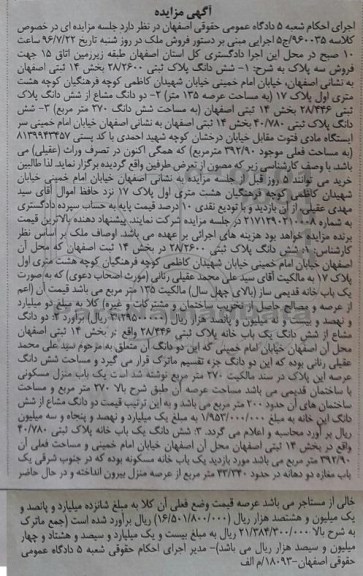 آگهی مزایده
اجرای احکام شعبه ۵ دادگاه عمومی حقوقی اصفهان در نظر دارد جلسه مزایده ای در خصوص
کلاسه ۹۶۰۰۳۵/ج۵ اجرایی مبنی بر دستور فروش ملک در روز شنبه تاریخ ۹۶/۷/۲۲ ساعت
۱۰ صبح در محل این اجرا دادگستری کل استان اصفهان طبقه زیرزمین اتاق ۱۵ جهت
فروش سه پلاک به شرح: ۱- شش دانگ پلاک ثبتی ۲۸/۲۶۰۰ بخش ۱۴ ثبتی اصفهان
به نشانی اصفهان: خیابان امام خمینی خیابان شهیدان کاظمی کوچه فرهنگیان کوچه هشت
متری اول پلاک ۱۷ (به مساحت عرصه ۱۳۵ متر) ۲- دو دانگ مشاع از شش دانگ پلاک
۲۸/۴۴۶ بخش ۱۴ ثبتی اصفهان (به مساحت شش دانگ ۲۷۰ متر مربع) ۳- شش
دانگ پلاک ثبتی ۴۰/۷۸۰ بخش ۱۴ ثبتی اصفهان به نشانی اصفهان خیابان امام خمینی سر
ایستگاه مادی فتوت مقابل خیابان درخشان کوچه شهید احمدی با کد پستی ۸۱۳۹۹۴۳۴۵۷
(به مساحت فعلی موجود ۳۹۲/۹۰ مترمربع) که همگی اکنون در تصرف وراث (عقیلی) می
باشد با وصف کارشناسی زیر که مصون از تعرض طرفین واقع گردیده برگزار نماید. لذا طالبین
خرید می توانند ۵ روز قبل از جلسه مزایده به نشانی اصفهان خیابان امام خمینی خیابان
شهیدان کاظمی کوچه فرهنگیان هشت متری اول پلاک ۱۷ نزد حافظ اموال آقای سید
مهدی عقیلی از آن بازدید و با تودیع نقدی ۱۰ درصد قیمت پایه به حساب سپرده دادگستری
شماره ۲۱۷۱۲۹۰۲۱۰۰۰۸ در جلسه مزایده شرکت نمایند. پیشنهاد دهنده بالاترین قیمت
برنده مزایده خواهد بود هزینه های اجرائی بر عهده می باشد. اوصاف ملک بر اساس نظر
کارشناس: ۱- شش دانگ پلاک ثبتی ۲۸/۲۶۰۰ در بخش ۱۴ ثبت اصفهان که محل آن
اصفهان خیابان امام خمینی خیابان شهیدان کاظمی کوچه فرهنگیان کوچه هشت متری اول
پلاک ۱۷ به مالکیت آقای سید علی محمد عقیلی ربانی (مورث اصحاب دعوی) که به صورت
یک باب خانه قدیمی ساز (بالای چهل سال) مالکیت ۱۳۵ متر مربع می باشد قیمت آن (اعم
از عرصه و مصالح حاصل از تخریب ساختمان و مشترکات و غیره) کلا به مبلغ دو میلیارد
و نهصد و بیست و نه میلیون و پانصد هزار ریال ریال برآورد. ۲- دو دانگ
مشاع از شش دانگ یک باب خانه پلاک ثبتی ۲۸/۴۴۶ واقع در بخش ۱۴ ثبتی اصفهان
محل آن اصفهان خیابان امام خمینی که این دو دانگ آن متعلق به مرحوم سید علی محمد
عقیلی ربانی بوده که این دو دانگ جزء تقسیم ماترک قرار می گیرد و مساحت شش دانگ
عرصه این پلاک در سند مالکیت ۲۷۰ متر مربع نوشته شد است یک باب منزل مسکونی
با ساختمان قدیمی می باشد مساحت عرصه آن طبق شرح بالا ۲۷۰ متر مربع و مساحت
ساختمان های آن حدود ۲۰۰ متر مربع می باشد و به این ترتیب قیمت دو دانگ مشاع از شش
دانگ این خانه به مبلغ ۱/۹۵۳/۰۰۰/۰۰۰ به مبلغ یک میلیارد و نهصد و پنجاه و سه میلیون
ریال برآورد محاسبه و اعلام می گردد. ۳- شش دانگ یک باب خانه پلاک ثبتی ۴۰/۷۸۰
واقع در بخش ۱۴ ثبتی اصفهان محل آن اصفهان خیابان امام خمینی و مساحت فعلی آن
۳۹۲/۹۰ متر مربع می باشد مورد بازدید یک باب خانه مسکونه بوده که در جنوب شرقی یک
باب مغازه دو دهانه در حدود ۴۳/۳۴۰ متر مربع از عرصه منزل بیرون انداخته و در حال حاضر
خالی از مستاجر می باشد عرصه قیمت وضع فعلی آن کلا به مبلغ شانزده میلیارد و پانصد و
یک میلیون و هشتصد هزار ریال (۱۶/۵۰۱/۸۰۰/۰۰۰) ریال برآورد شده است (جمع ماترک
به شرح بالا ۲۱/۳۸۴/۳۰۰/۰۰۰ ریال به مبلغ بیست و یک میلیارد و سیصد و هشتاد و چهار
میلیون و سیصد هزار ریال می باشد)- مدیر اجرای احکام حقوقی شعبه ۵ دادگاه عمومی
حقوقی اصفهان-۱۸۰۹۳/م الف